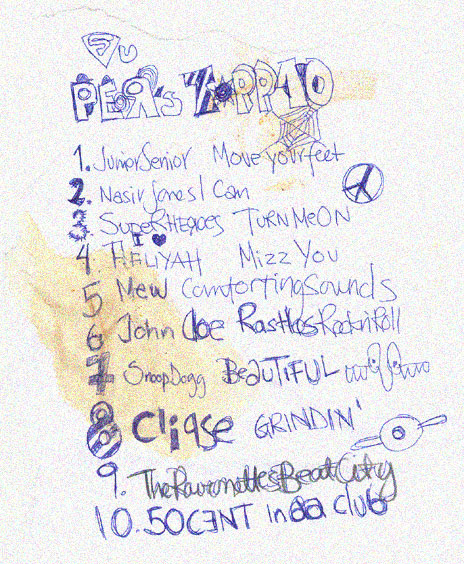 PEЯ's TOPP10
1. JuniorSenior Move your feet
2. Nasir Jones I Can
3. SUPERHEROES TURN ME ON
I ♥
4. AELIYAH Mizz You
5 Mew Comforting Sounds
6 John Doe Rock n Roll
7 Snoop Dogg BEAUTIFUL
8 Cliqse GRINDIN'
9. The Raveonettes Beat City
10. 50 CENT in da club